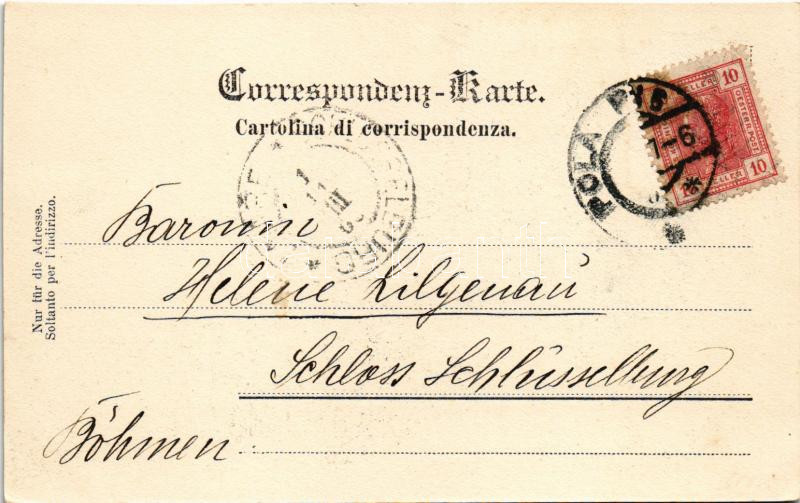 Correspondenz-Karte.
Cartolina di corrispondenza.
Nur für die Adresse.
Soltanto per l'indirizzo.
10
10
10
POLA
6
Baronin
Helene Lilgenau
Schloss Schlüsselburg
Böhmen